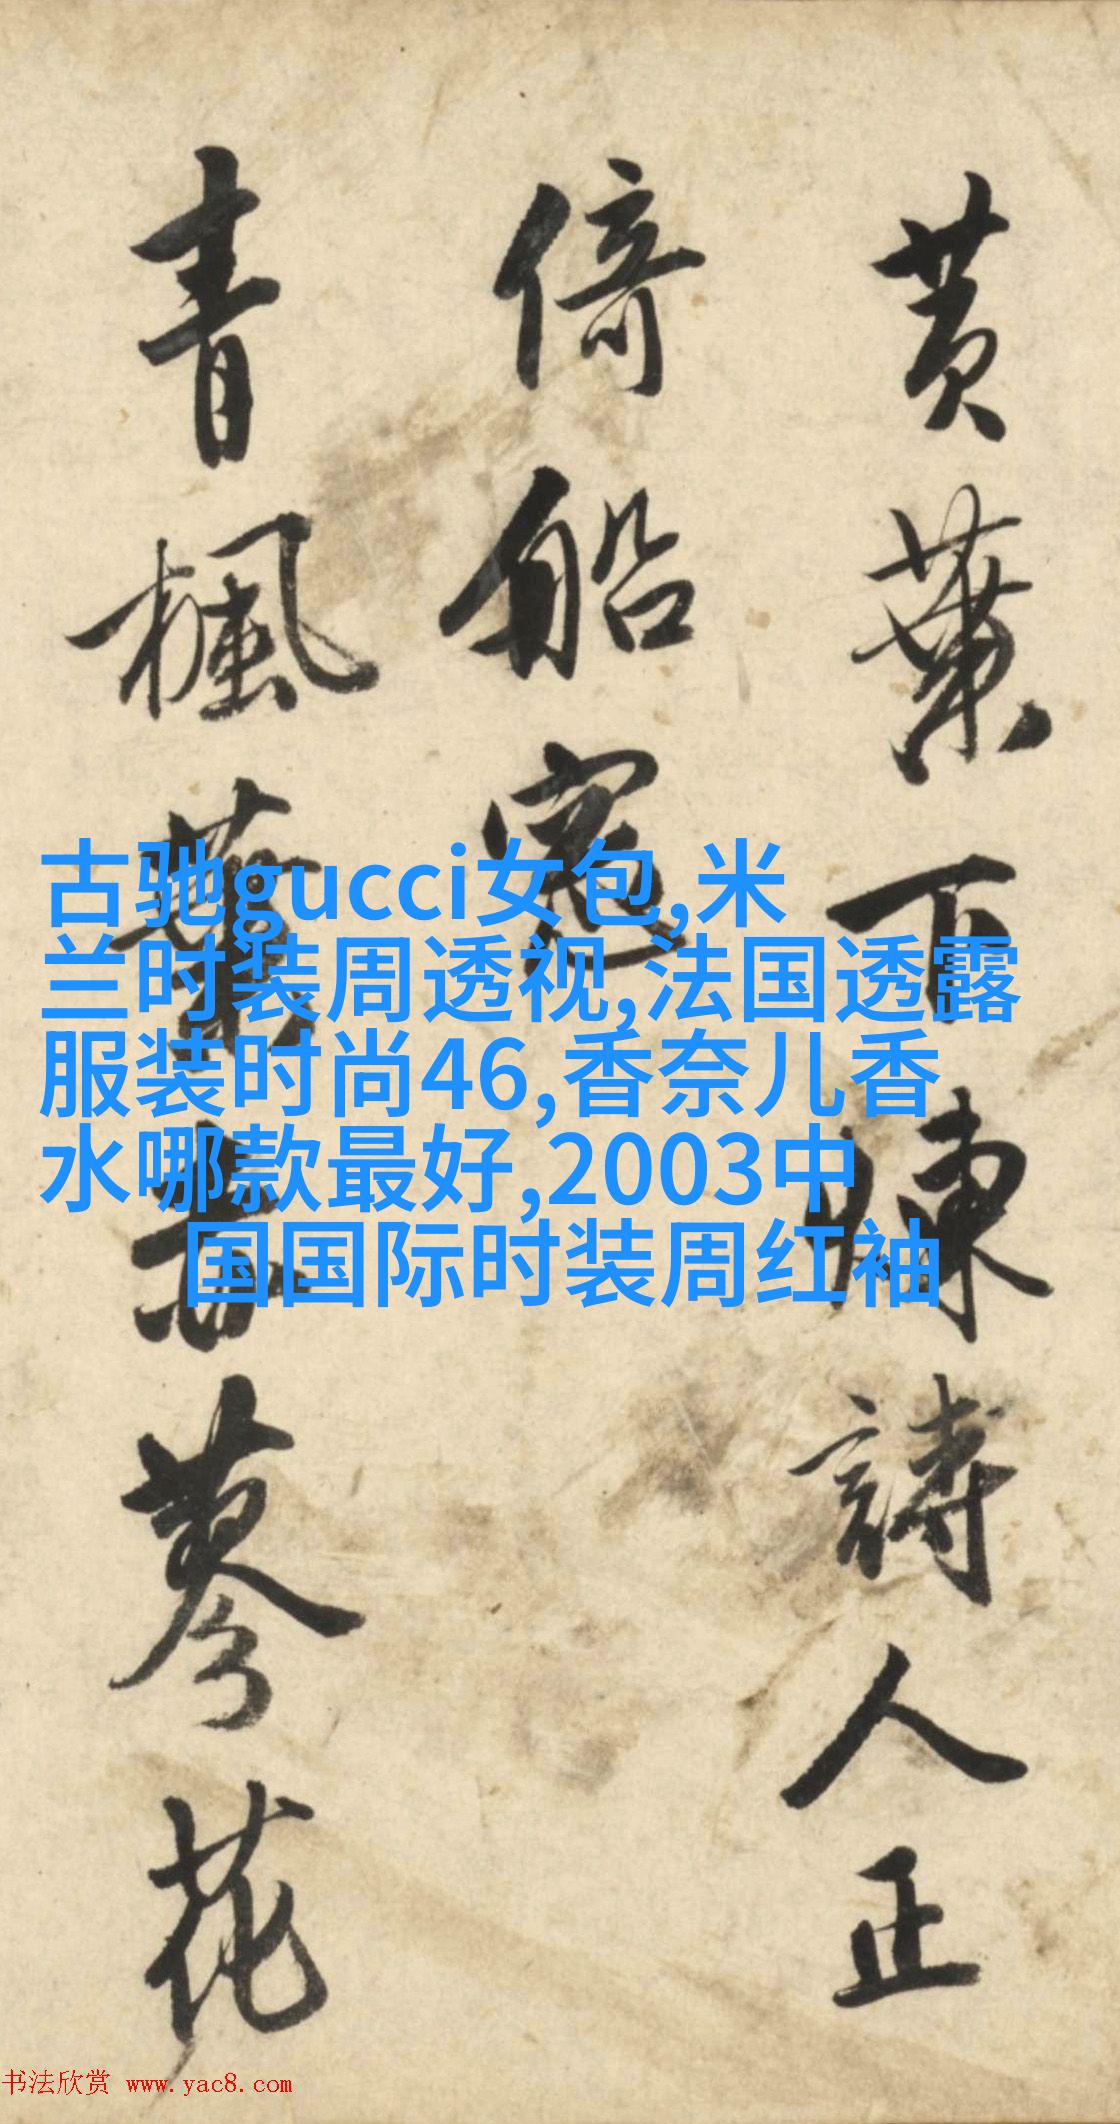 黄葉下詩人正
倚船
青楓葉蓼花
古驰gucci女包,米
兰时装周透视,法国透露
服装时尚46,香奈儿香
水哪款最好,2003中
国国际时装周红袖
书法欣赏 www.yac8.com